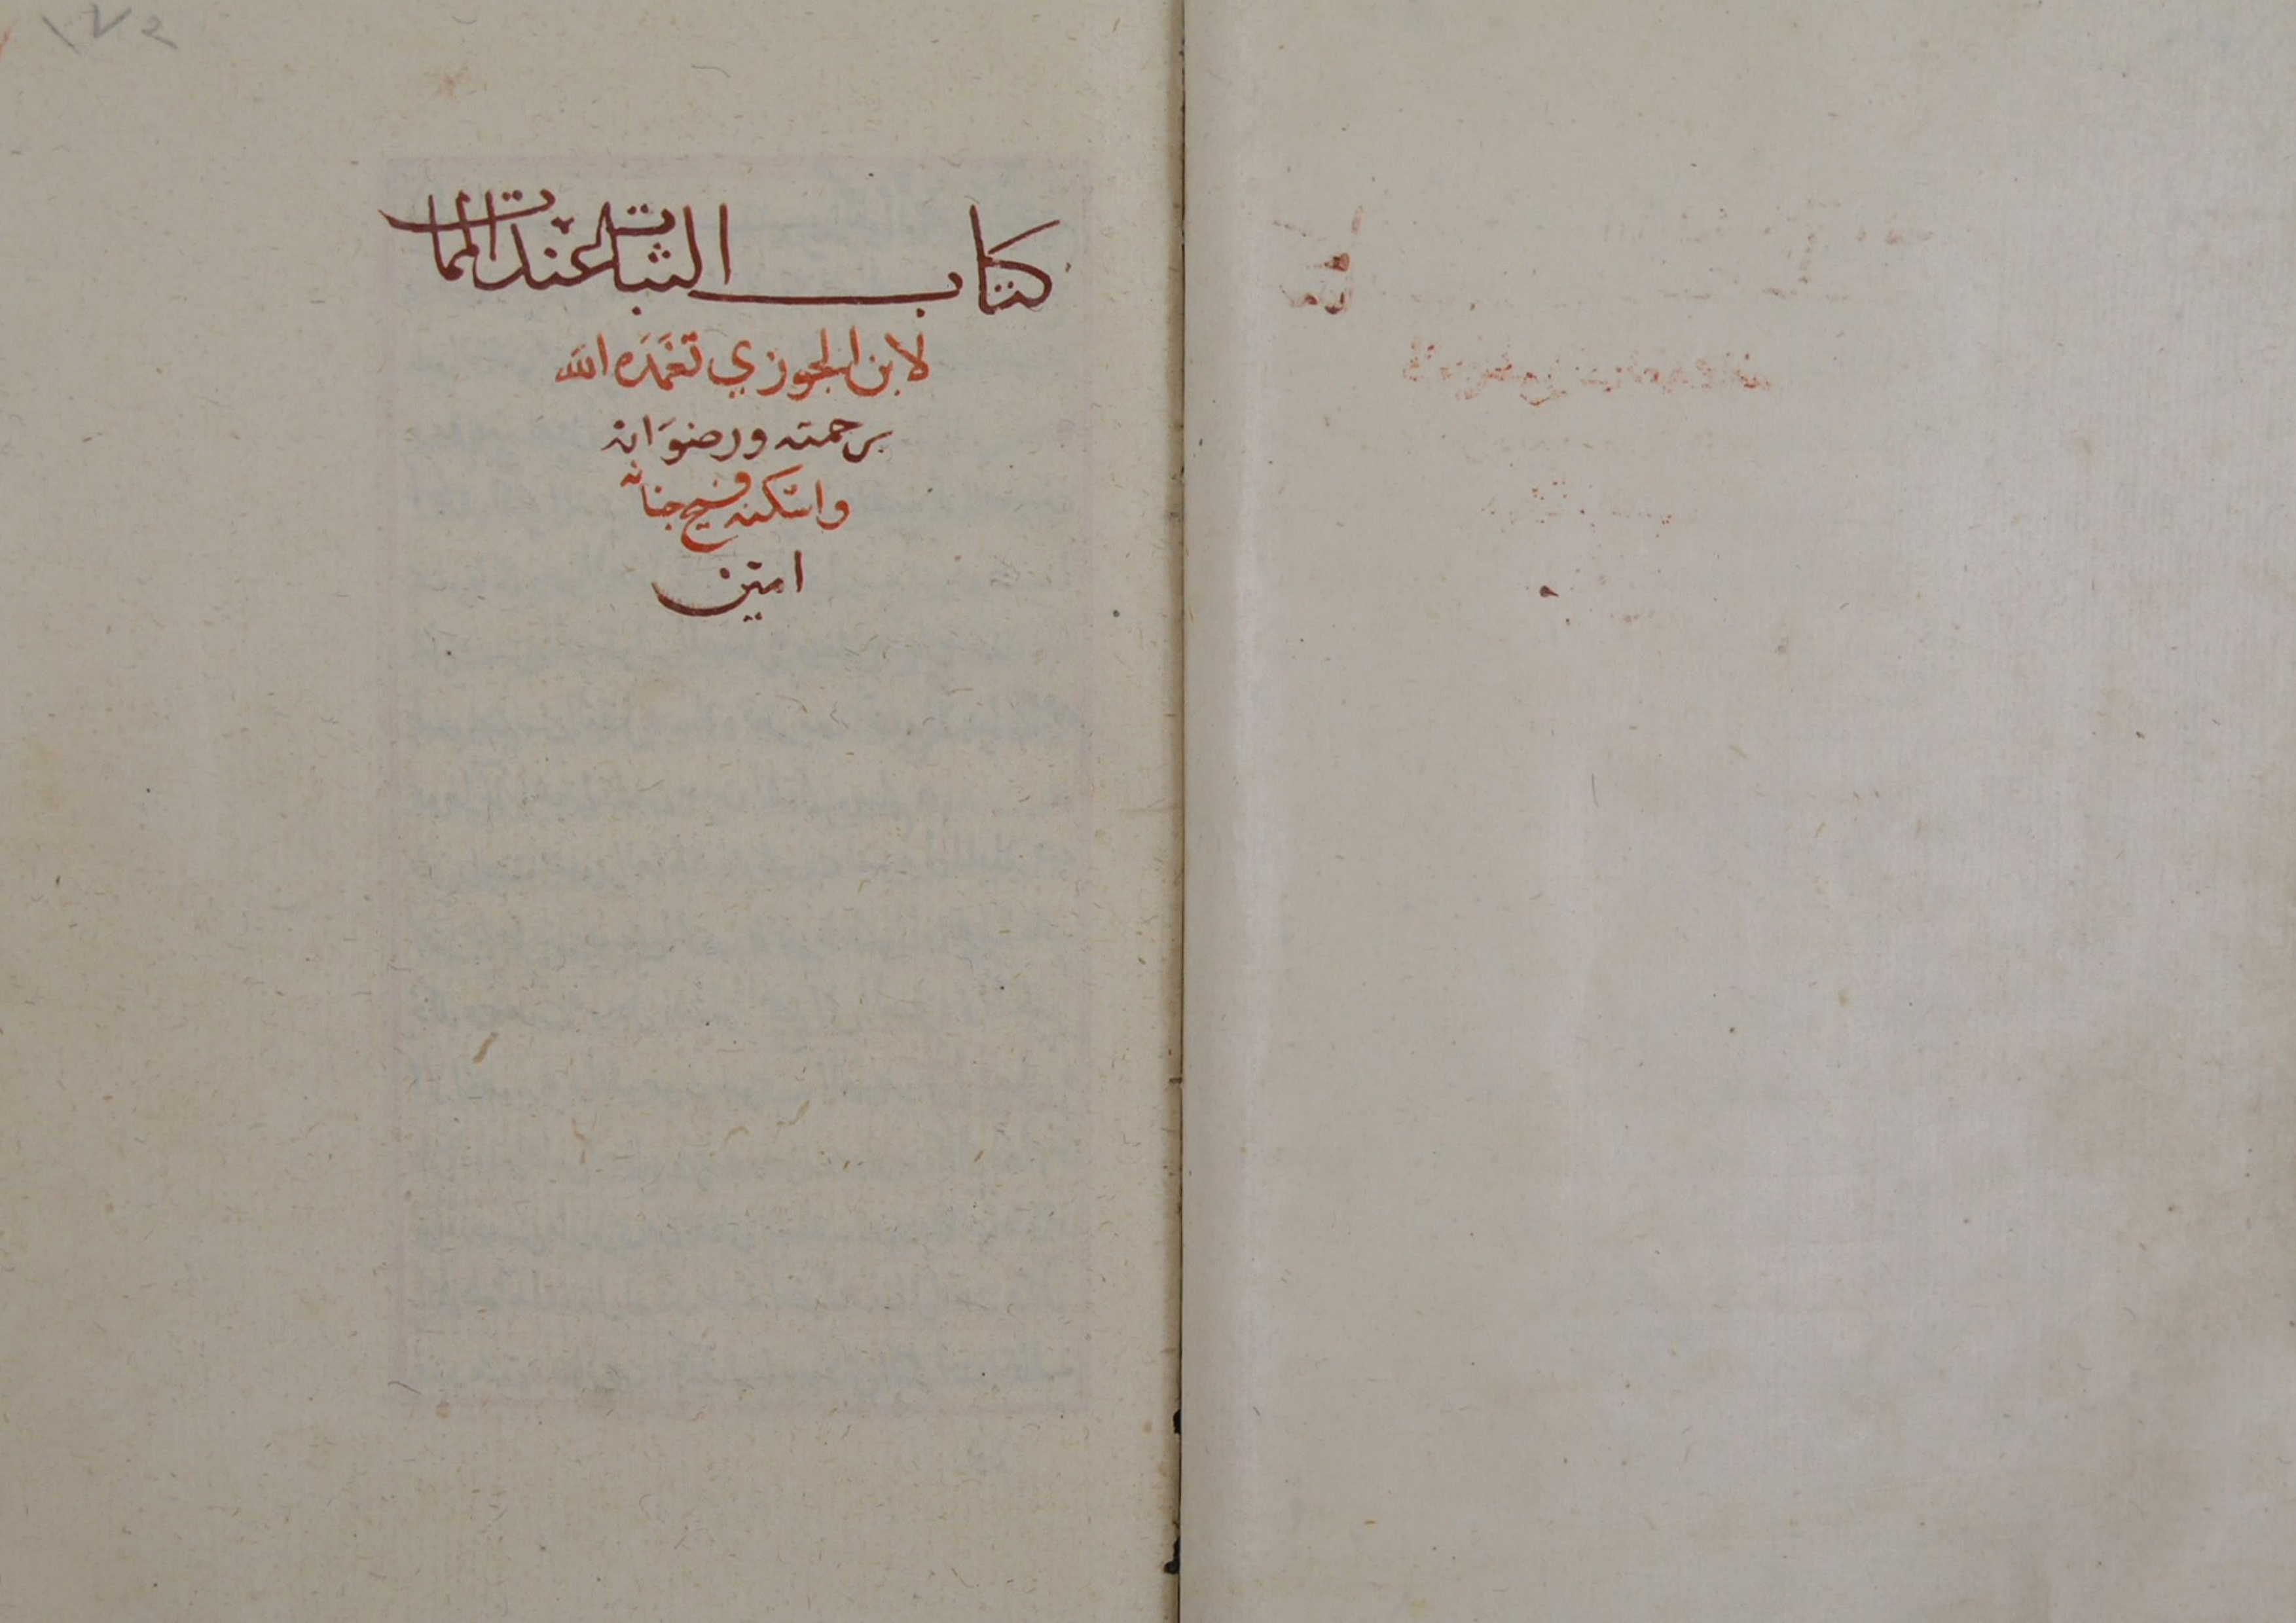 كتاب الثبات عند الممات
لابن الجوزي تغمده الله
برحمته ورضوانه
واسكنه فسيح جنانه
امين